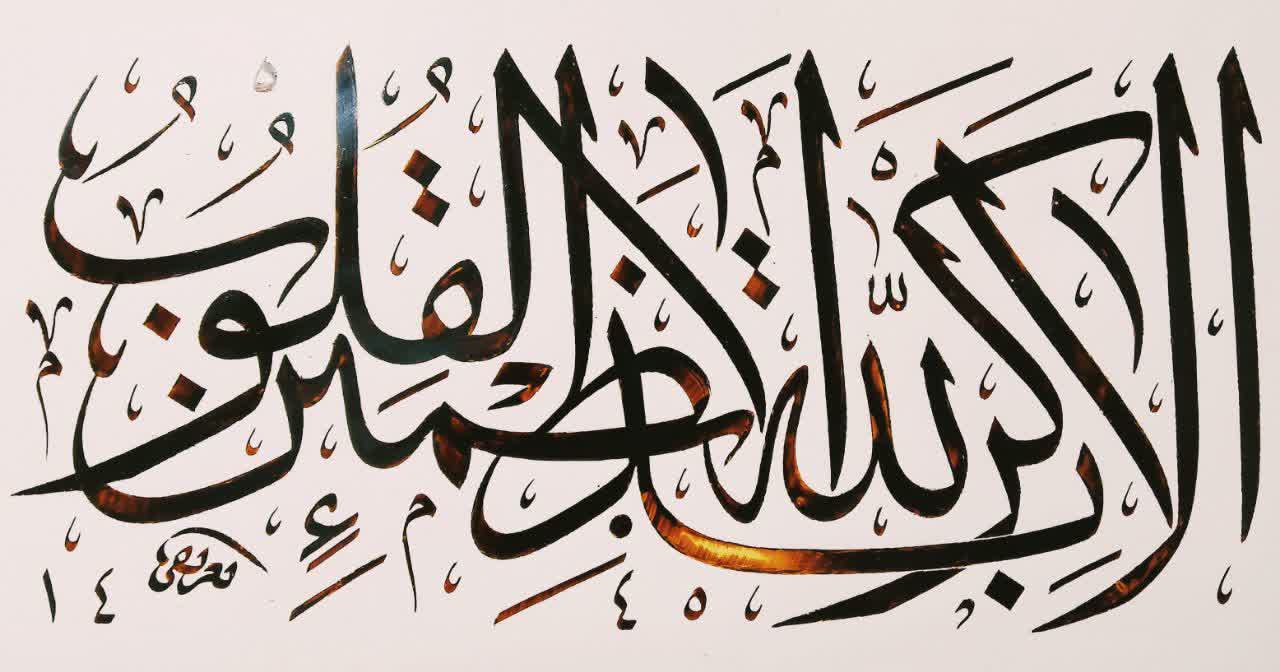 ألا بذكر الله تطمئن القلوب
١٤٤٥